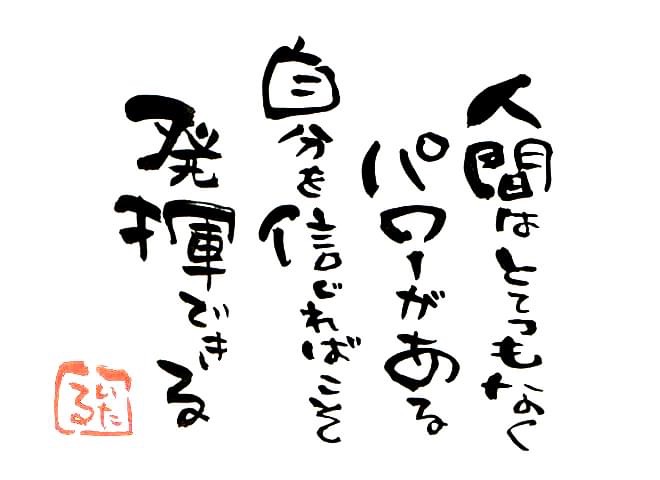 人間はとてつもなく
パワーがある
自分を信じればこそ
発揮できる
いたる